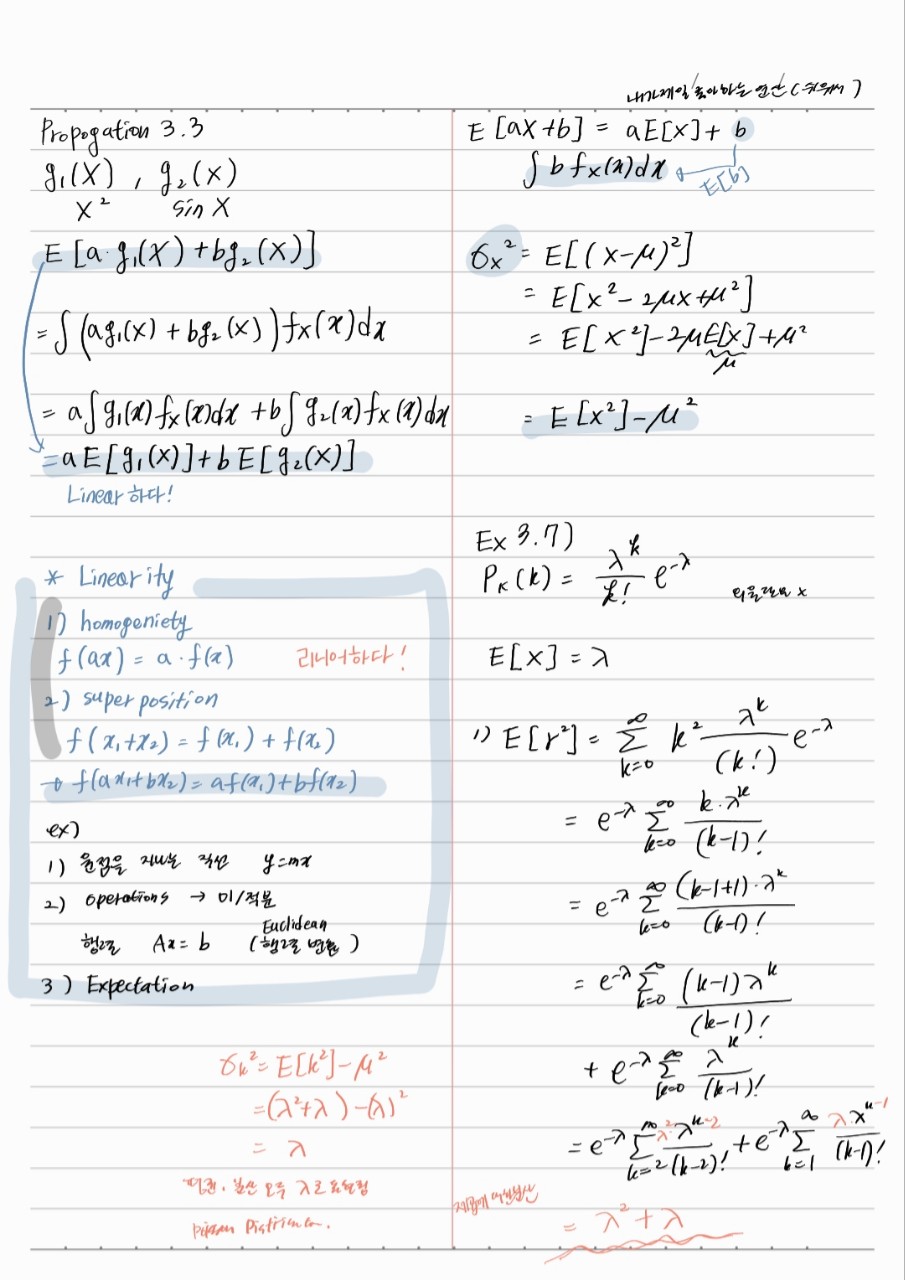 Propogation 3.3
g₁(X) , g₂(x)
X² sin X
E[a·g₁(X)+bg₂(X)]
=∫(ag₁(x)+bg₂(x))fx(x)dx
= a∫g₁(x)fx(x)dx +b∫g₂(x)fx(x)dx
=aE[g₁(X)]+bE[g₂(X)]
Linear 하다!
* Linearity
1) homogeniety
f(ax) = a·f(x) 리니어하다!
2) super position
f(x₁+x₂) = f(x₁)+f(x₂)
→ f(ax₁+bx₂)=af(x₁)+bf(x₂)
ex)
1) 원점을 지나는 직선 y=mx
2) operations → 미/적분
행렬 Ax=b (Euclidean 행렬 변환)
3) Expectation
σk²=E[k²]-μ²
=(λ²+λ)-(λ)²
= λ
평균, 분산 모두 λ로
내가 제일 좋아하는 연산 (쉬워서)
E[aX+b] = aE[x]+b
∫b fx(x)dx ← E[b]
σx² = E[(x-μ)²]
= E[x²-2μx+μ²]
= E[X²]-2μE[x]+μ²
μ
= E[x²]-μ²
Ex 3.7)
Pₖ(k) = λᵏ/k! e^-λ
E[X]=λ
1) E[r²] = ∑_{k=0}^{∞} k² λᵏ/(k!) e^-λ
= e^-λ ∑_{k=0}^{∞} k·λᵏ/(k-1)!
= e^-λ ∑_{k=0}^{∞} (k-1+1)·λᵏ/(k-1)!
= e^-λ ∑_{k=0}^{∞} (k-1)λᵏ/(k-1)!
+ e^-λ ∑_{k=0}^{∞} λᵏ/(k-1)!
= e^-λ ∑_{k=2}^{∞} λ²·λ^{k-2}/(k-2)! + e^-λ ∑_{k=1}^{∞} λ·λ^{k-1}/(k-1)!
= λ²+λ